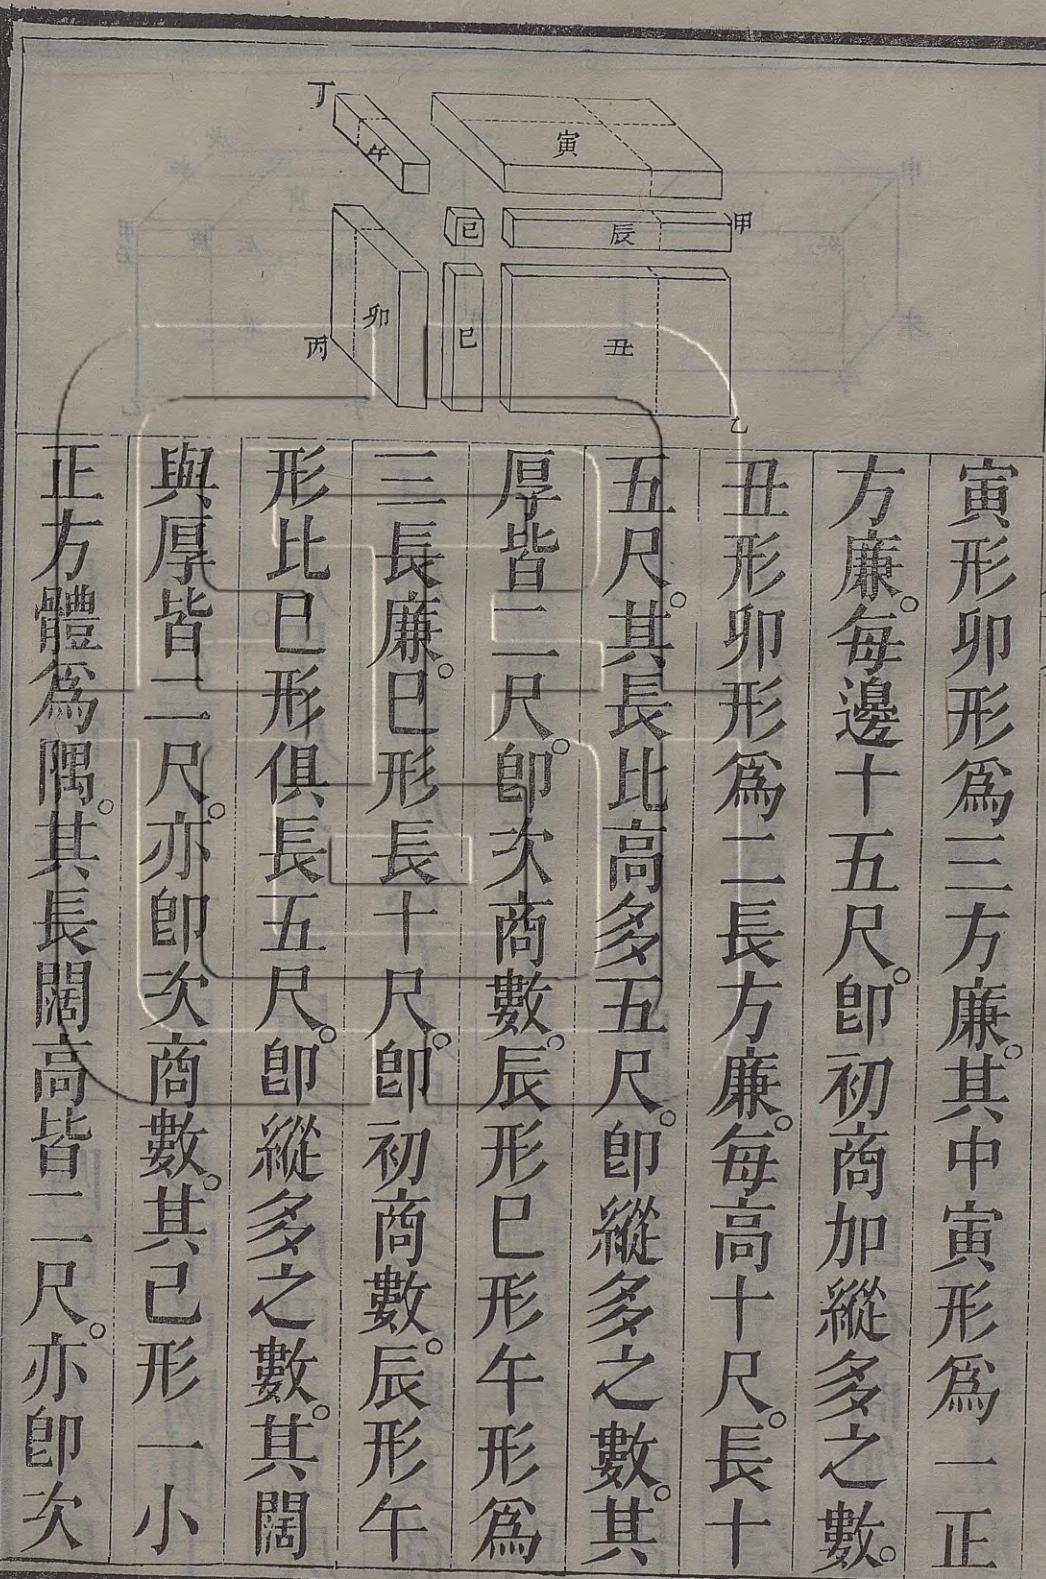 丁
午
寅
甲
己
辰
卯
丙
巳
丑
乙
寅形卯形爲三方廉。其中寅形爲一正
方廉。每邊十五尺。卽初商加縱多之數。
丑形卯形爲二長方廉。每高十尺。長十
五尺。其長比高多五尺。卽縱多之數。其
厚皆二尺。卽次商數。辰形巳形午形爲
三長廉。巳形長十尺。卽初商數。辰形午
形比巳形俱長五尺。卽縱多之數。其闊
與厚皆二尺。亦卽次商數。其己形一小
正方體爲隅。其長闊高皆二尺。亦卽次